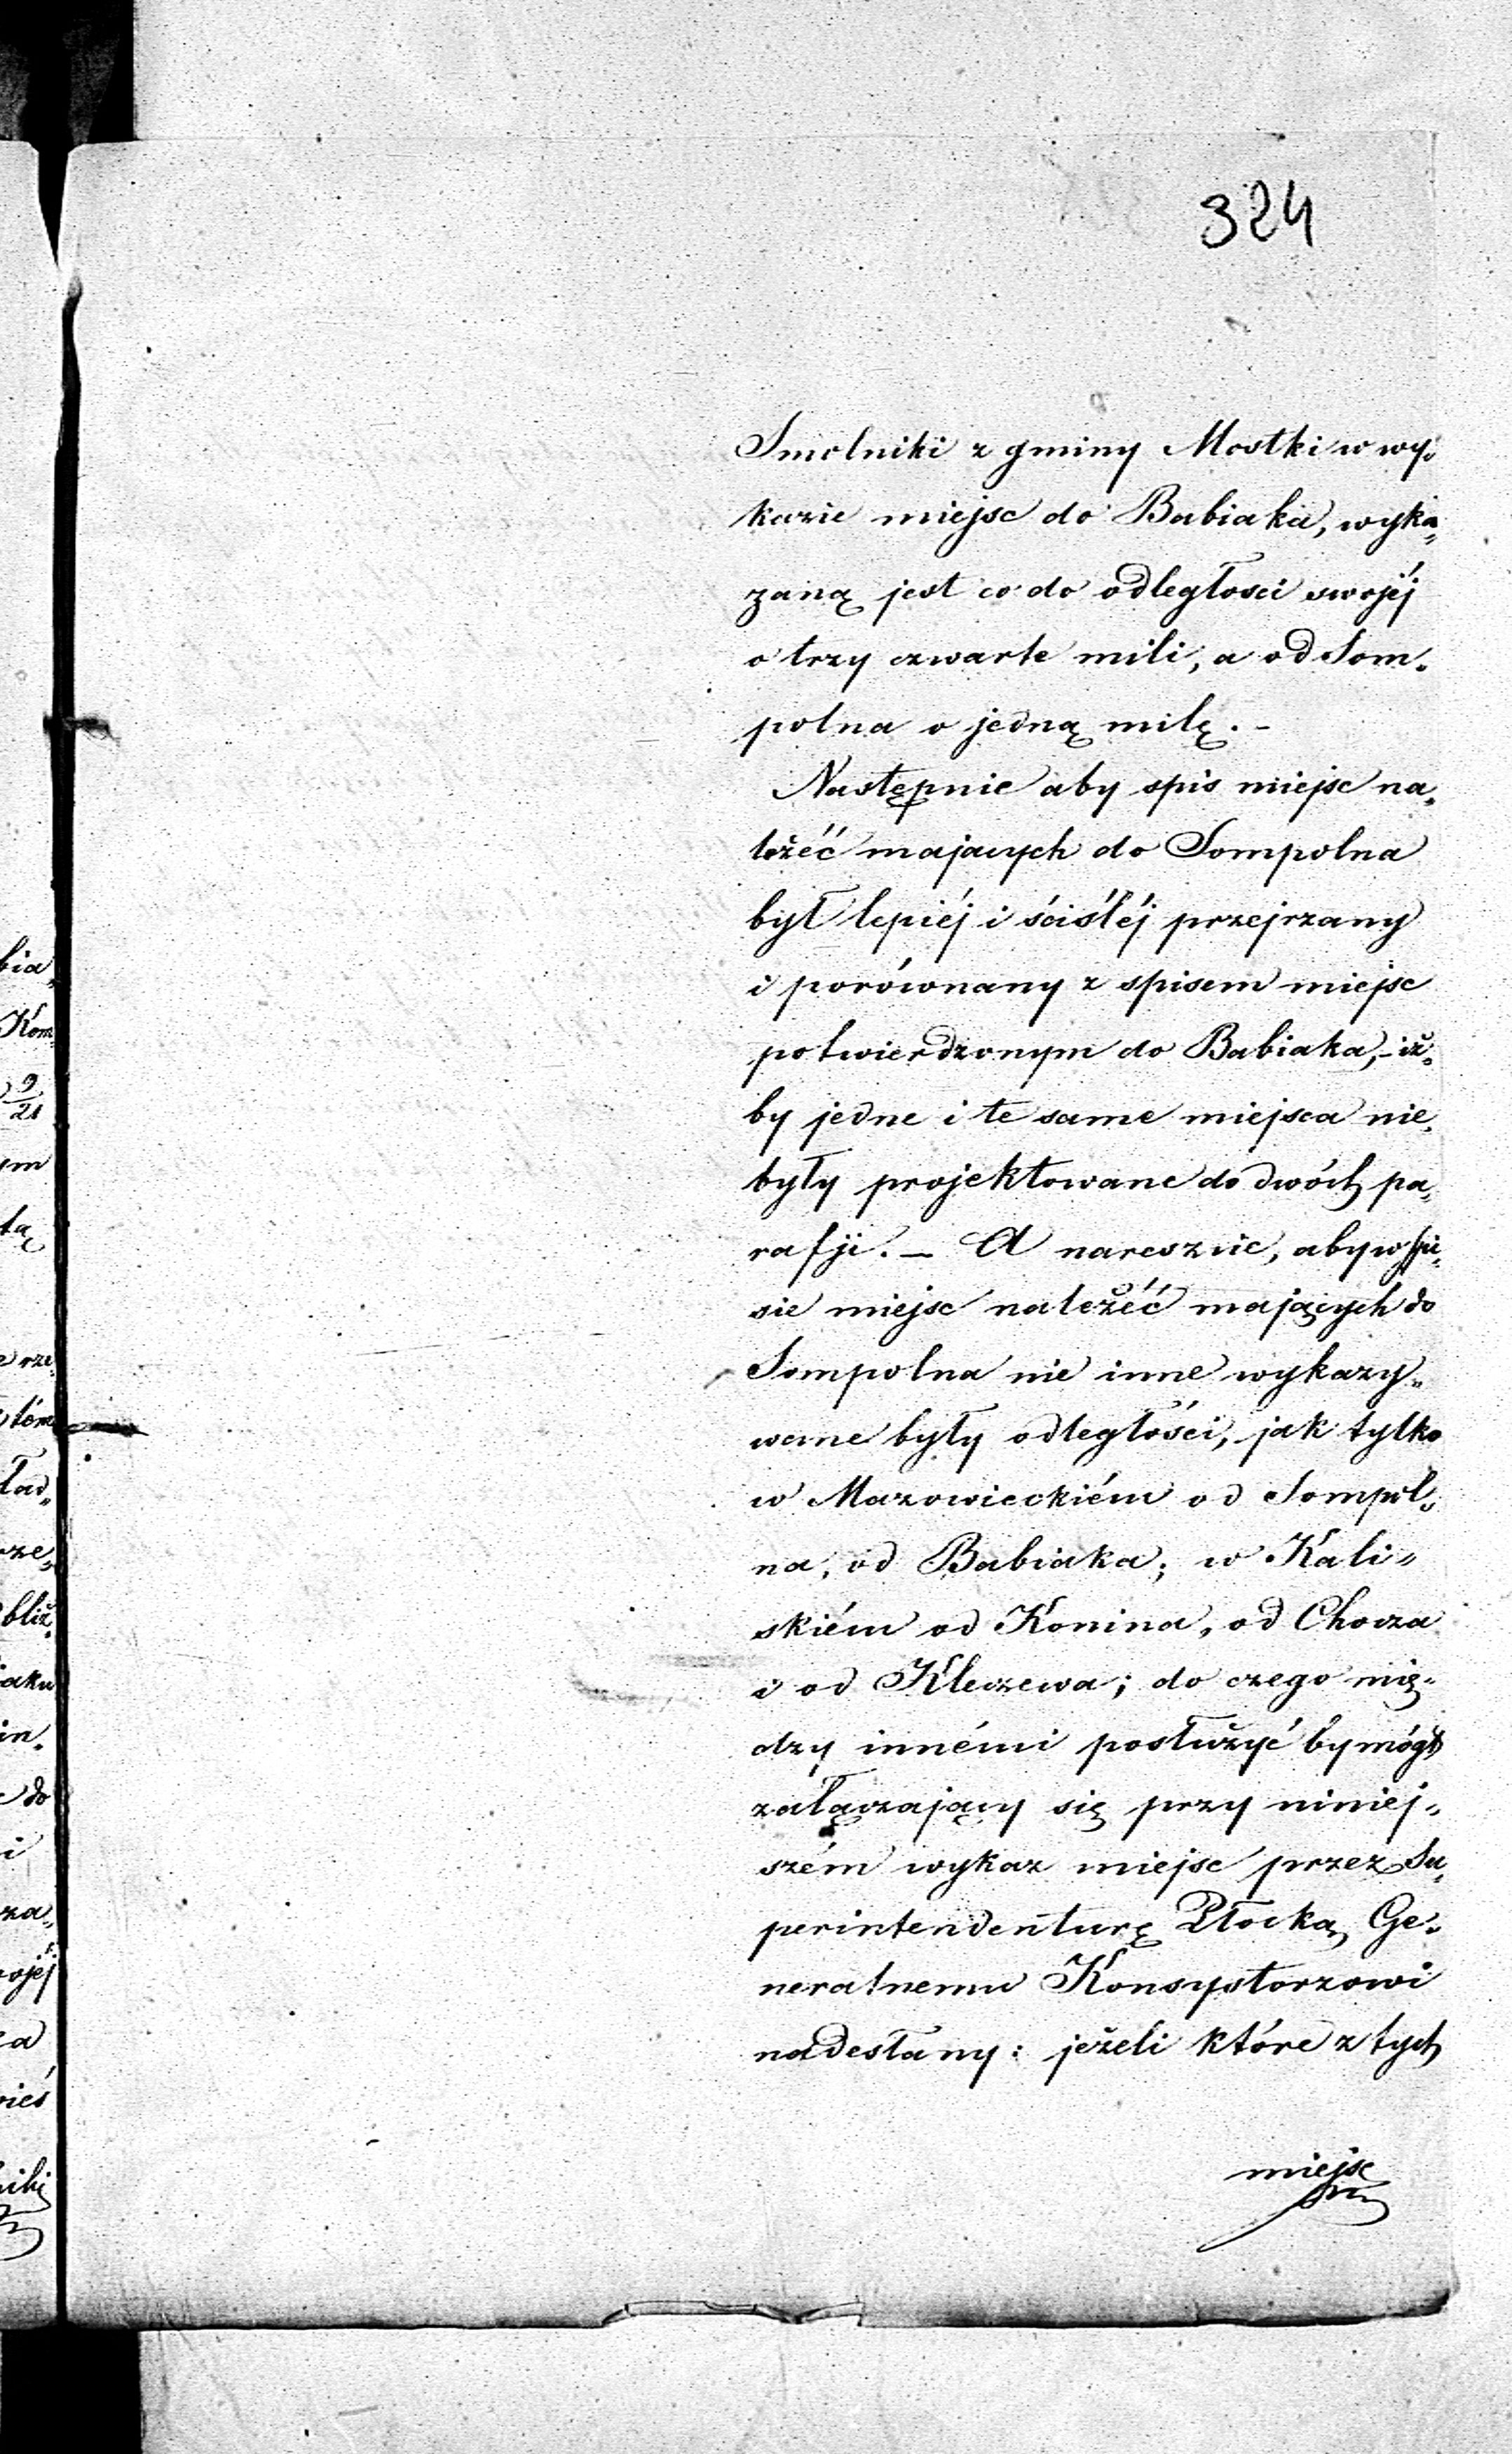 324
Smolniki z gminy Mostki w wy„
kazie miejsc do Babiaka, wyka„
zaną jest co do odległości swojéj
o trzy czwarte mili, a od Som„
polna o jedną milę. –
Następnie aby spis miejsc na„
leżéć majacych do Sompolna
był lepiéj i ściśléj przejrzany
i porównany z spisem miejsc
potwierdzonym do Babiaka, – iż„
by jedne i te same miejsca nie„
były projektowane do dwóch pa„
rafji. – A nareszcie, aby w spi„
sie miejsc należéć mających do
Sompolna nie inne wykazy„
wane były odległości, jak tylko
w Mazowieckiém od Sompol„
na, od Babiaka; w Kali„
skiém od Konina, od Chocza
i od Kleczewa; do czego mię„
dzy innémi posłużyć by mógł
załączający się przy niniej„
szém wykaz miejsc przez Su„
perintendenturę Płocką Ge„
neralnemu Konsystorzowi
nadesłany: jeżeli które z tych
miejsc
bia„
Kom„
9/21
ym
tą
rze„
tém
ład„
rze„
bliż„
iaku
in„
do
i
za„
ojéj
ca
wieś
niki